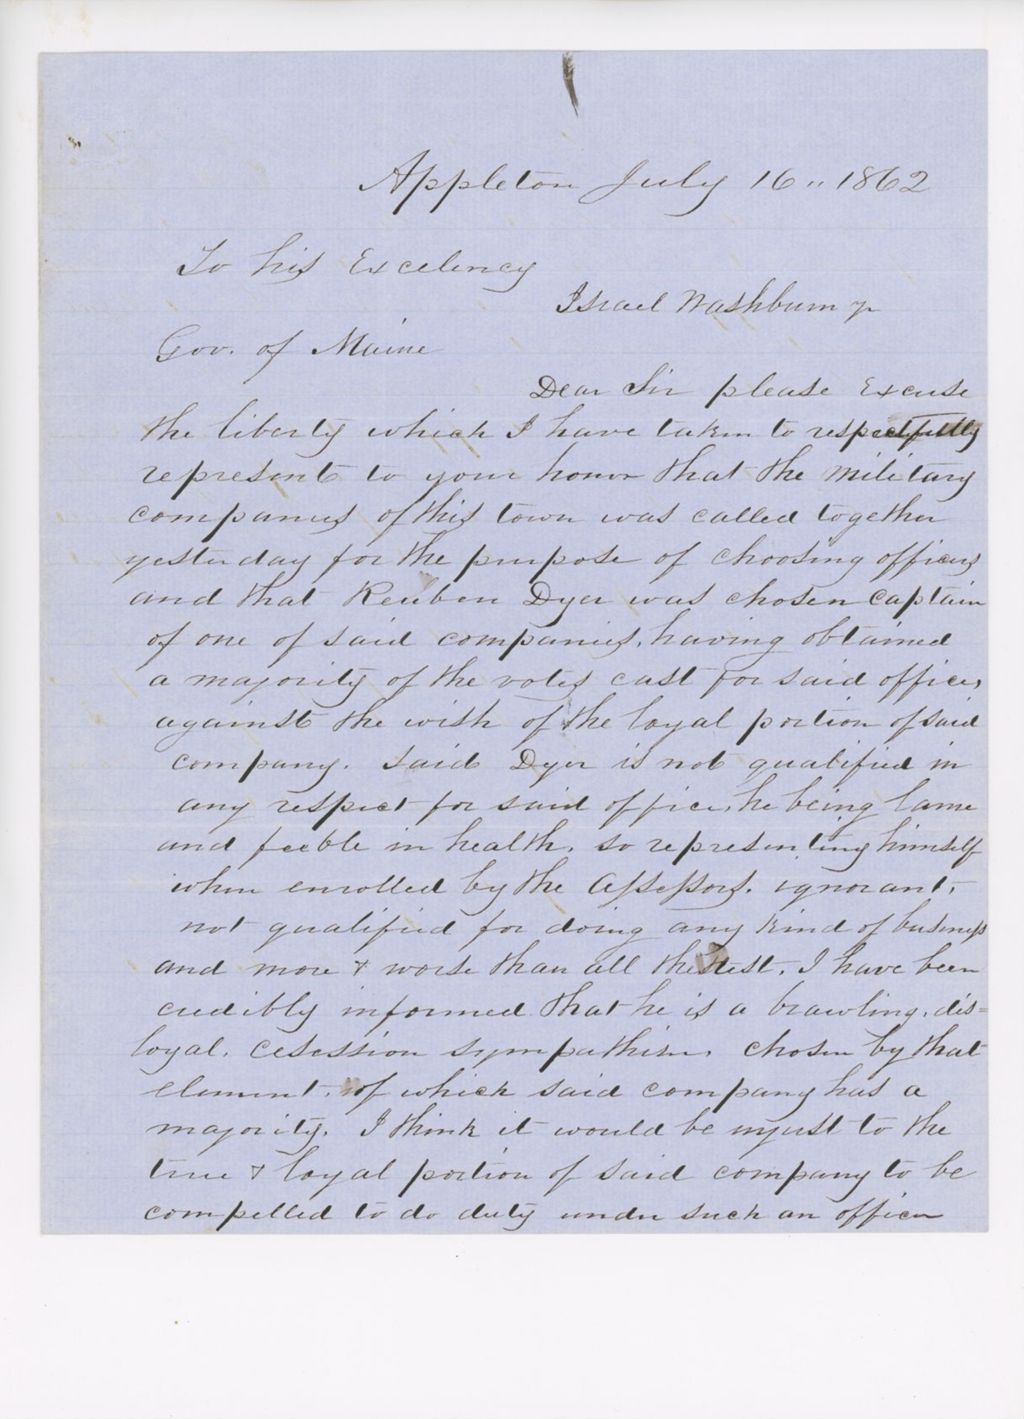 Appleton July 16" 1862
To his Excelency
Israel Washburn Jr
Gov. of Maine
Dear Sir please Excuse
the liberty which I have taken to respectfully
represent to your honor that the military
companies of this town was called together
yesterday for the purpose of choosing officers
and that Reuben Dyer was chosen captain
of one of said companies, having obtained
a majority of the votes cast for said office,
against the wish of the loyal portion of said
company. Said Dyer is not qualified in
any respect for said office, he being lame
and feeble in health, so representing himself
when enrolled by the assessors. ignorant,
not qualified for doing any kind of business
and more & worse than all the rest, I have been
credibly informed that he is a brawling, dis=
loyal, cesession sympathiser, chosen by that
element, of which said company has a
majority. I think it would be unjust to the
true & loyal portion of said company to be
compelled to do duty under such an officer